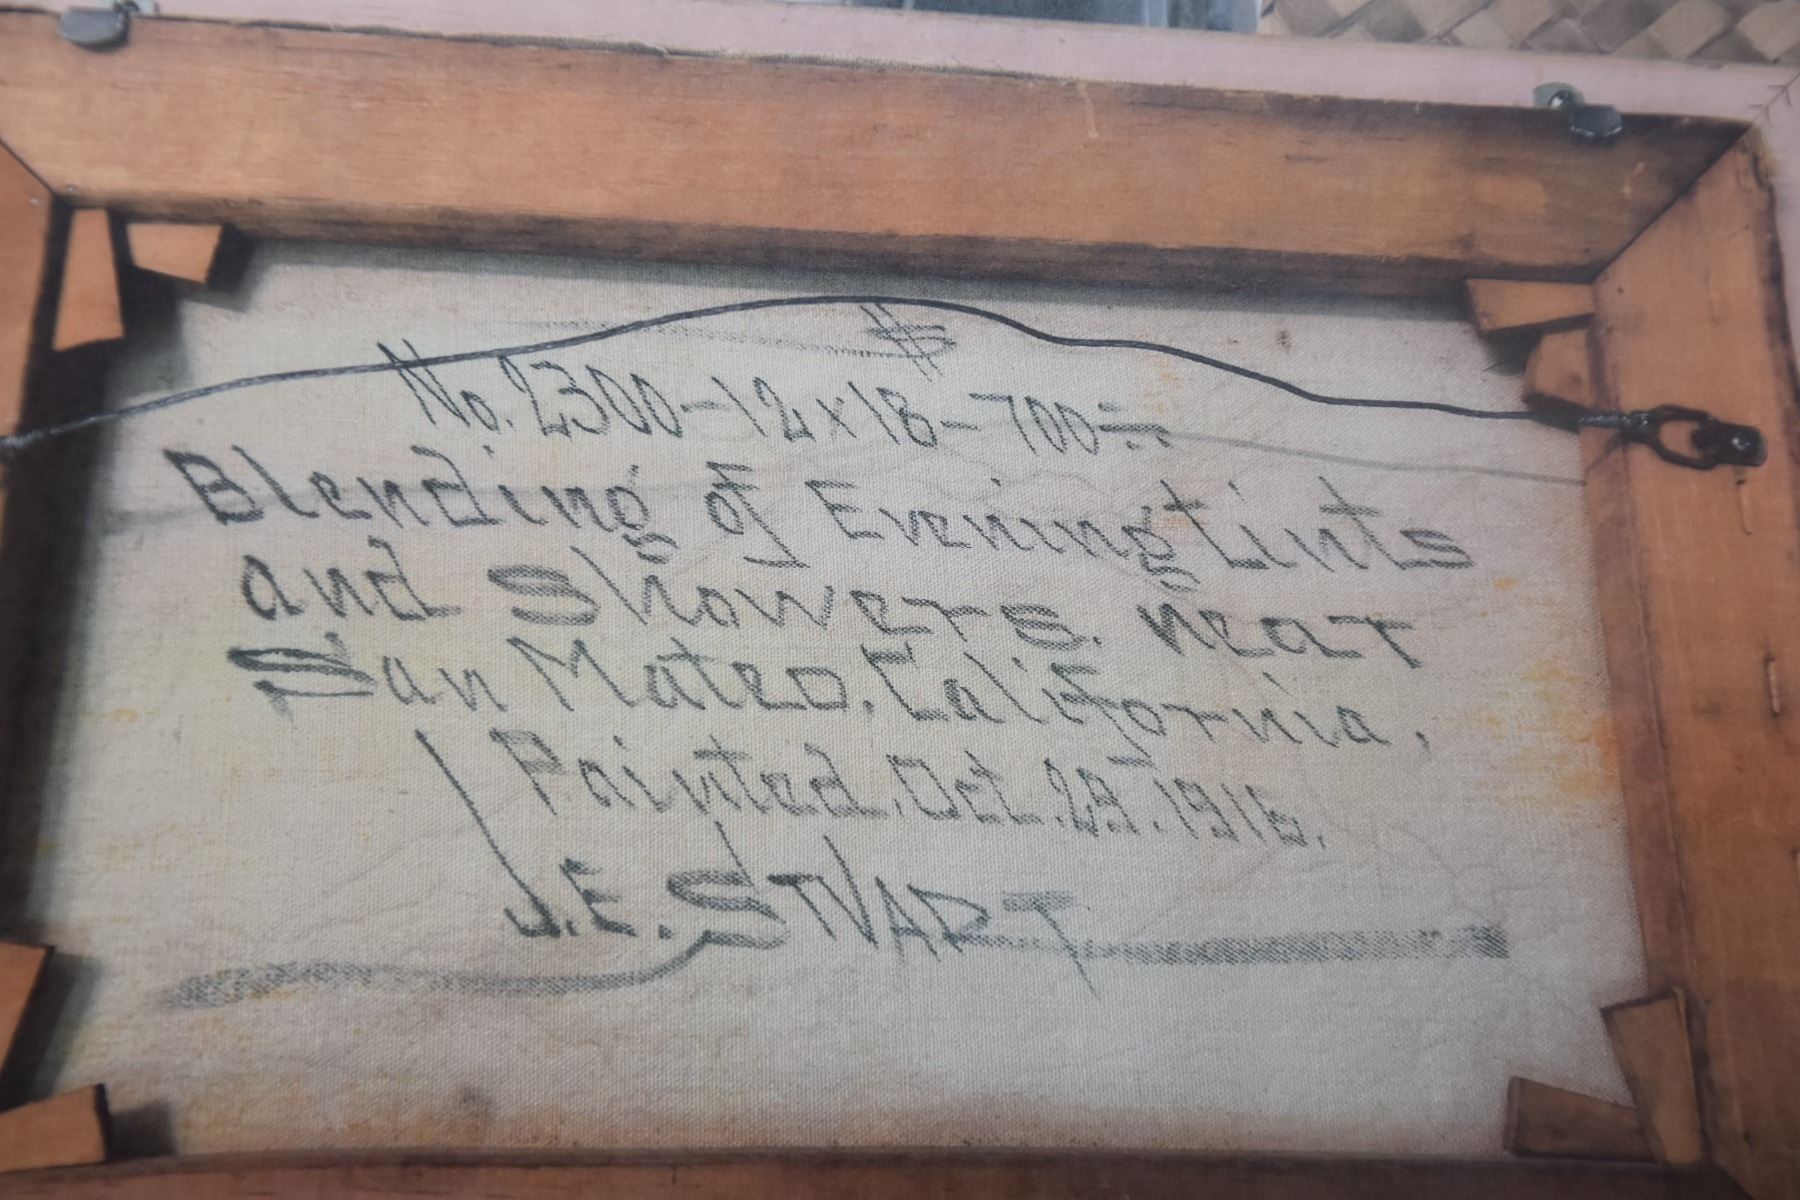 $
No. 2300-12x18-700÷
Blending of Evening tints
and Showers. near
San Mateo, California,
Painted, Oct. 29. 1916.
J.E. STVART